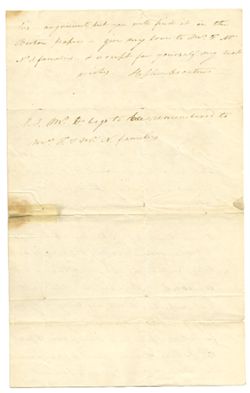 his arguments but you will find it in the
Boston papers - give my love to Mr. & Mr
N's families & accept for yourself my best
wishes
P.S. Mrs. begs to be remembered to
Mrs. & Mr. N. families